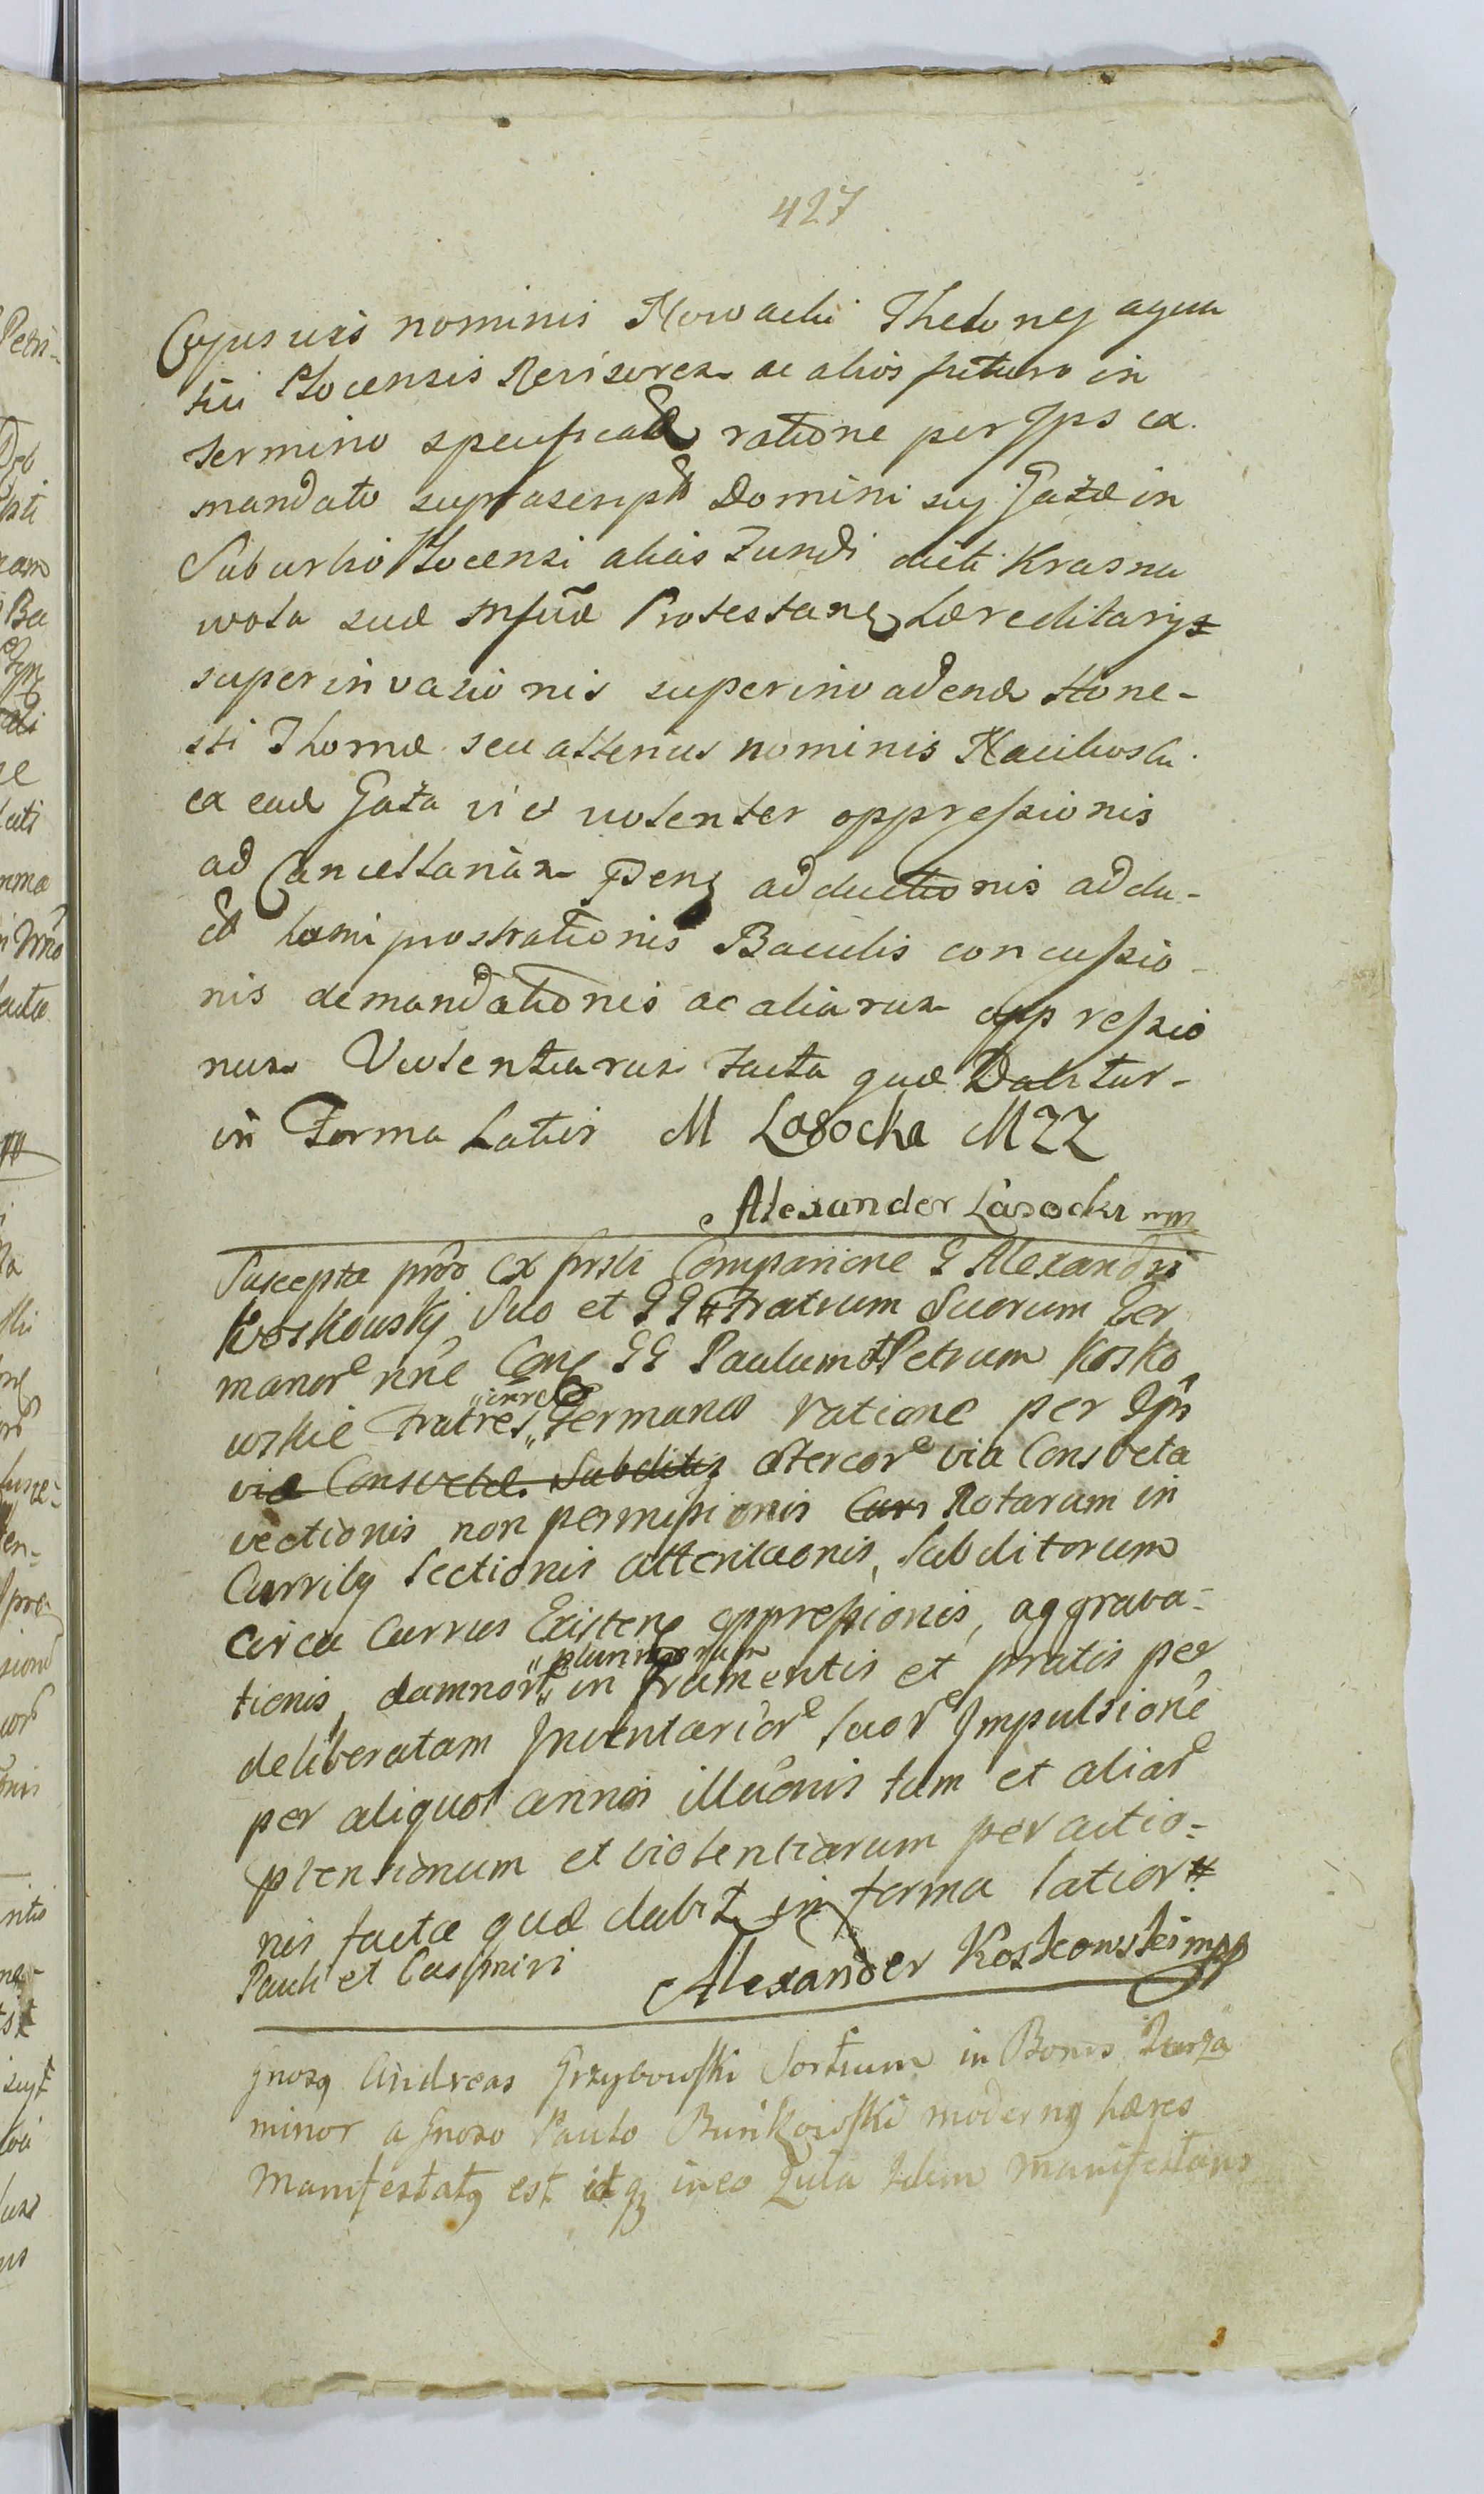 427
Cujusvis nominis Nowacki Theloney aqua
tici Plocensis Revisorem ac alios futuro in
termino specificad ratione per Ips ex
mandato suprascripti Domini suj Gaza in
Suburbio Plocensi alias Fundi dicti Krasna
wola suæ Protestans hæreditarys
superinvasionis superinvadend Hone-
sti Thomæ seu alterius nominis
ex ead Gaza vi et violenter oppressionis
ad Cancellariam adductionis addu-
ct humi prostrationis Baculis concussio-
nis demandationis ac aliarum oppressio
num Violentiarum facta quæ Dabitur-
in Forma Latiis M Lasocka MZZ
Alexander Lasocki mm
Suscepta pro ex prsti Comparicione G Alexandri
Koskowskj Suo et GG Fratrum Suorum Ger
manor nne Con GG Paulum et Petrum Kosko
wskie Fratres Germanos ratione per Ips
via Consvetæ Subditis stercor via Consveta
vectionis non permissionis Curr Rotarum in
Curribq Sectionis attentaonis, Subditorum
circa Currus Existen oppressionis, aggrava-
tionis, damnor "plurimorum" in frumentis et pratis per
deliberatam Inventarior suor Impulsione
per aliquot annos illaonis tum et aliar
plensionum et violentiarum peractio-
nis factæ quæ dabit in forma latior #
Pauli et Casimiri Alexander Koskowski mpp
Gnosq Andreas Grzybowski Sortium in Bonis Turza
minor a Gnoso Paulo Bunkowski modernq hæres
Manifestatq est idq in eo Quia Idem manifestans